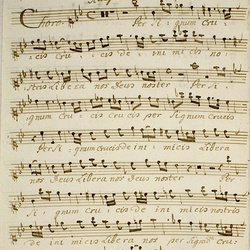 Choro. Per Signum Cru =
cis cru = cis de ini mi cis no =
stris Libera nos Deus noster Per Si =
gnum cru = cis per Signum Crucis
Per Si = gnum crucis de ini = micis Libera
nos Deus Libera nos Deus noster Per
Si = gnum Cru = cis de ini = micis nostris
de ini micis Libera nos per Signum Cru